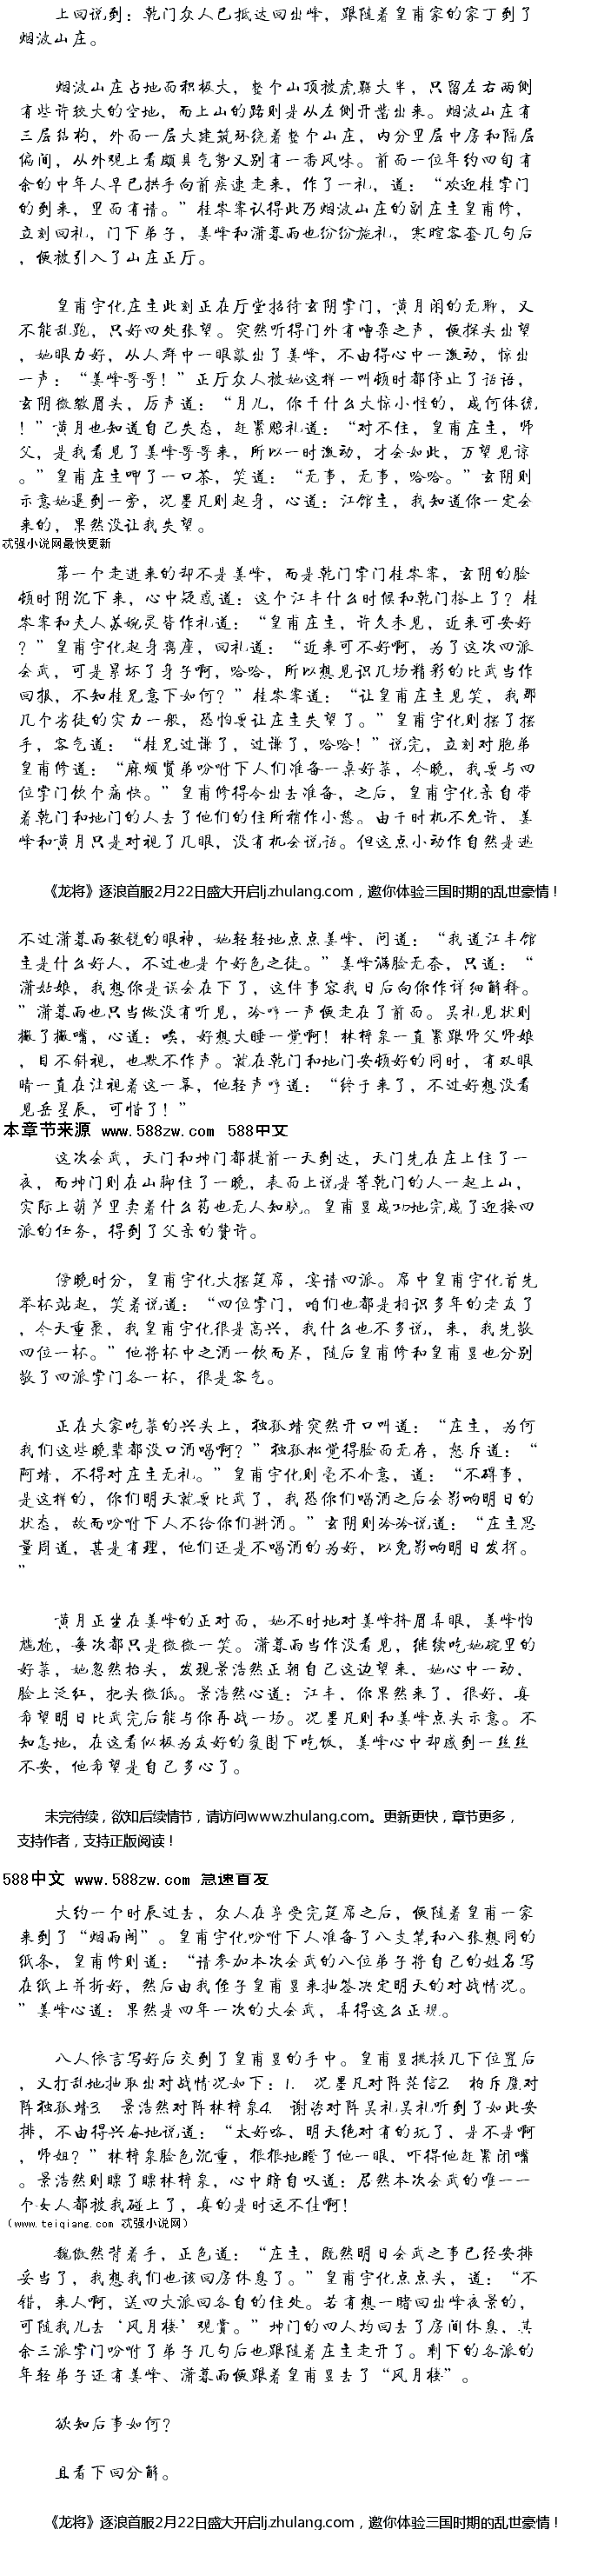 上回说到：乾门众人已抵达回出峰，跟随着皇甫家的家丁到了
烟波山庄。
烟波山庄占地面积极大，整个山顶被虎踞大半，只留左右两侧
有些许较大的空地，而上山的路则是从左侧开凿出来。烟波山庄有
三层结构，外面一层大建筑环绕着整个山庄，内分里层中房和隔层
偏间，从外观上看颇具气势又别有一番风味。前面一位年约四旬有
余的中年人早已拱手向前疾速走来，作了一礼，道：“欢迎桂掌门
的到来，里面有请。”桂岑霏认得此乃烟波山庄的副庄主皇甫修，
立刻回礼，门下弟子，姜峰和潇暮雨也纷纷施礼，寒暄客套几句后
，便被引入了山庄正厅。
皇甫宇化庄主此刻正在厅堂招待玄阴掌门，黄月闲的无聊，又
不能乱跑，只好四处张望。突然听得门外有嘈杂之声，便探头出望
，她眼力好，从人群中一眼敲出了姜峰，不由得心中一激动，惊出
一声：“姜峰哥哥！”正厅众人被她这样一叫顿时都停止了话语，
玄阴微皱眉头，厉声道：“月儿，你干什么大惊小怪的，成何体统
！”黄月也知道自己失态，赶紧赔礼道：“对不住，皇甫庄主，师
父，是我看见了姜峰哥哥来，所以一时激动，才会如此，万望见谅
。”皇甫庄主呷了一口茶，笑道：“无事，无事，哈哈。”玄阴则
示意她退到一旁，况墨凡则起身，心道：江馆主，我知道你一定会
来的，果然没让我失望。
忒强小说网最快更新
第一个走进来的却不是姜峰，而是乾门掌门桂岑霏，玄阴的脸
顿时阴沉下来，心中疑惑道：这个江丰什么时候和乾门搭上了？桂
岑霏和夫人苏婉灵皆作礼道：“皇甫庄主，许久未见，近来可安好
？”皇甫宇化起身离座，回礼道：“近来可不好啊，为了这次四派
会武，可是累坏了身子啊，哈哈，所以想见识几场精彩的比武当作
回报，不知桂兄意下如何？”桂岑霏道：“让皇甫庄主见笑，我那
几个劣徒的实力一般，恐怕要让庄主失望了。”皇甫宇化则摆了摆
手，客气道：“桂兄过谦了，过谦了，哈哈！”说完，立刻对胞弟
皇甫修道：“麻烦贤弟吩咐下人们准备一桌好菜，今晚，我要与四
位掌门饮个痛快。”皇甫修得令出去准备，之后，皇甫宇化亲自带
着乾门和地门的人去了他们的住所稍作小憩。由于时机不允许，姜
峰和黄月只是对视了几眼，没有机会说话。但这点小动作自然是逃
《龙将》逐浪首服2月22日盛大开启lj.zhulang.com，邀你体验三国时期的乱世豪情！
不过潇暮雨敏锐的眼神，她轻轻地点点姜峰，问道：“我道江丰馆
主是什么好人，不过也是个好色之徒。”姜峰满脸无奈，只道：“
潇姑娘，我想你是误会在下了，这件事容我日后向你作详细解释。
”潇暮雨也只当做没有听见，冷哼一声便走在了前面。吴礼见状则
撇了撇嘴，心道：唉，好想大睡一觉啊！林梓泉一直紧跟师父师娘
，目不斜视，也默不作声。就在乾门和地门安顿好的同时，有双眼
睛一直在注视着这一幕，他轻声哼道：“终于来了，不过好想没看
见岳星辰，可惜了！”
本章节来源 www.588zw.com 588中文
这次会武，天门和坤门都提前一天到达，天门先在庄上住了一
夜，而坤门则在山脚住了一晚，表面上说是等乾门的人一起上山，
实际上葫芦里卖着什么药也无人知晓。皇甫昱成功地完成了迎接四
派的任务，得到了父亲的赞许。
傍晚时分，皇甫宇化大摆筵席，宴请四派。席中皇甫宇化首先
举杯站起，笑着说道：“四位掌门，咱们也都是相识多年的老友了
，今天重聚，我皇甫宇化很是高兴，我什么也不多说，来，我先敬
四位一杯。”他将杯中之酒一饮而尽，随后皇甫修和皇甫昱也分别
敬了四派掌门各一杯，很是客气。
正在大家吃菜的兴头上，独孤靖突然开口叫道：“庄主，为何
我们这些晚辈都没口酒喝啊？”独孤松觉得脸面无存，怒斥道：“
阿靖，不得对庄主无礼。”皇甫宇化则毫不介意，道：“不碍事，
是这样的，你们明天就要比武了，我恐你们喝酒之后会影响明日的
状态，故而吩咐下人不给你们斟酒。”玄阴则冷冷说道：“庄主思
量周道，甚是有理，他们还是不喝酒的为好，以免影响明日发挥。
”
黄月正坐在姜峰的正对面，她不时地对姜峰挤眉弄眼，姜峰怕
尴尬，每次都只是微微一笑。潇暮雨当作没看见，继续吃她碗里的
好菜，她忽然抬头，发现景浩然正朝自己这边望来，她心中一动，
脸上泛红，把头微低。景浩然心道：江丰，你果然来了，很好，真
希望明日比武完后能与你再战一场。况墨凡则和姜峰点头示意。不
知怎地，在这看似极为友好的氛围下吃饭，姜峰心中却感到一丝丝
不安，他希望是自己多心了。
未完待续，欲知后续情节，请访问www.zhulang.com。更新更快，章节更多，
支持作者，支持正版阅读！
588中文 www.588zw.com 急速首发
大约一个时辰过去，众人在享受完筵席之后，便随着皇甫一家
来到了“烟雨阁”。皇甫宇化吩咐下人准备了八支笔和八张想同的
纸条，皇甫修则道：“请参加本次会武的八位弟子将自己的姓名写
在纸上并折好，然后由我侄子皇甫昱来抽签决定明天的对战情况。
”姜峰心道：果然是四年一次的大会武，弄得这么正规。
八人依言写好后交到了皇甫昱的手中。皇甫昱挑换几下位置后
，又打乱地抽取出对战情况如下：1. 况墨凡对阵茫信2. 柏斥糜对
阵独孤靖3. 景浩然对阵林梓泉4. 谢咨对阵吴礼吴礼听到了如此安
排，不由得兴奋地说道：“太好咯，明天绝对有的玩了，是不是啊
，师姐？”林梓泉脸色沉重，狠狠地瞪了他一眼，吓得他赶紧闭嘴
。景浩然则瞟了瞟林梓泉，心中暗自叹道：居然本次会武的唯一一
个女人都被我碰上了，真的是时运不仕啊！
（www.teiqiang.com 忒强小说网）
魏傲然背着手，正色道：“庄主，既然明日会武之事已经安排
妥当了，我想我们也该回房休息了。”皇甫宇化点点头，道：“不
错，来人啊，送四大派回各自的住处。若有想一睹回出峰夜景的，
可随我儿去‘风月楼’观赏。”坤门的四人均回去了房间休息，其
余三派掌门吩咐了弟子几句后也跟随着庄主走开了。剩下的各派的
年轻弟子还有姜峰、潇暮雨便跟着皇甫昱去了“风月楼”。
欲知后事如何？
且看下回分解。
《龙将》逐浪首服2月22日盛大开启lj.zhulang.com，邀你体验三国时期的乱世豪情！